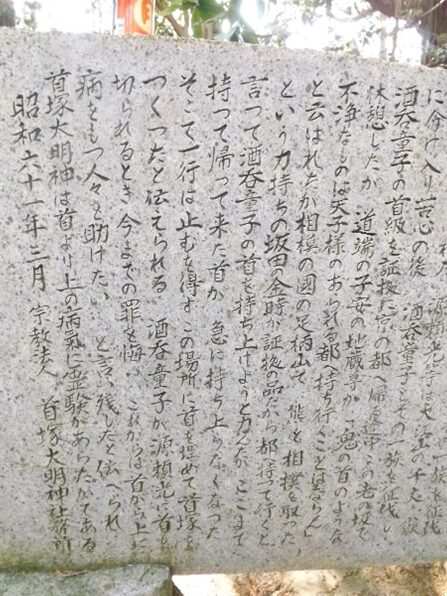 に分け入り苦心の後 酒呑童子とその一族を征伐し
酒呑童子の首級を証拠に京の都へ帰る途中この老の坂で
休憩したが 道端の子安の地蔵尊が「鬼の首のような
不浄なものは天子様のおられる都へ持ち行くことはならん」
と云はれたが相模の國の足柄山で 熊と相撲を取った
という力持ちの坂田の金時が証拠の品だから都へ持って行くと
言って酒呑童子の首を持ち上げようと力んだが ここまで
持って帰って来た首が 急に持ち上らなくなった
そこで一行は止むを得ず この場所に首を埋めて首塚を
つくったと伝えられる 酒呑童子が源頼光に首を
切られるとき今までの罪を悔い これからは首から上に
病をもつ人々を助けたい と言い残したと伝へられ
首塚大明神は首より上の病気に霊験があらたかである
昭和六十一年三月 宗教法人 首塚大明神社務所